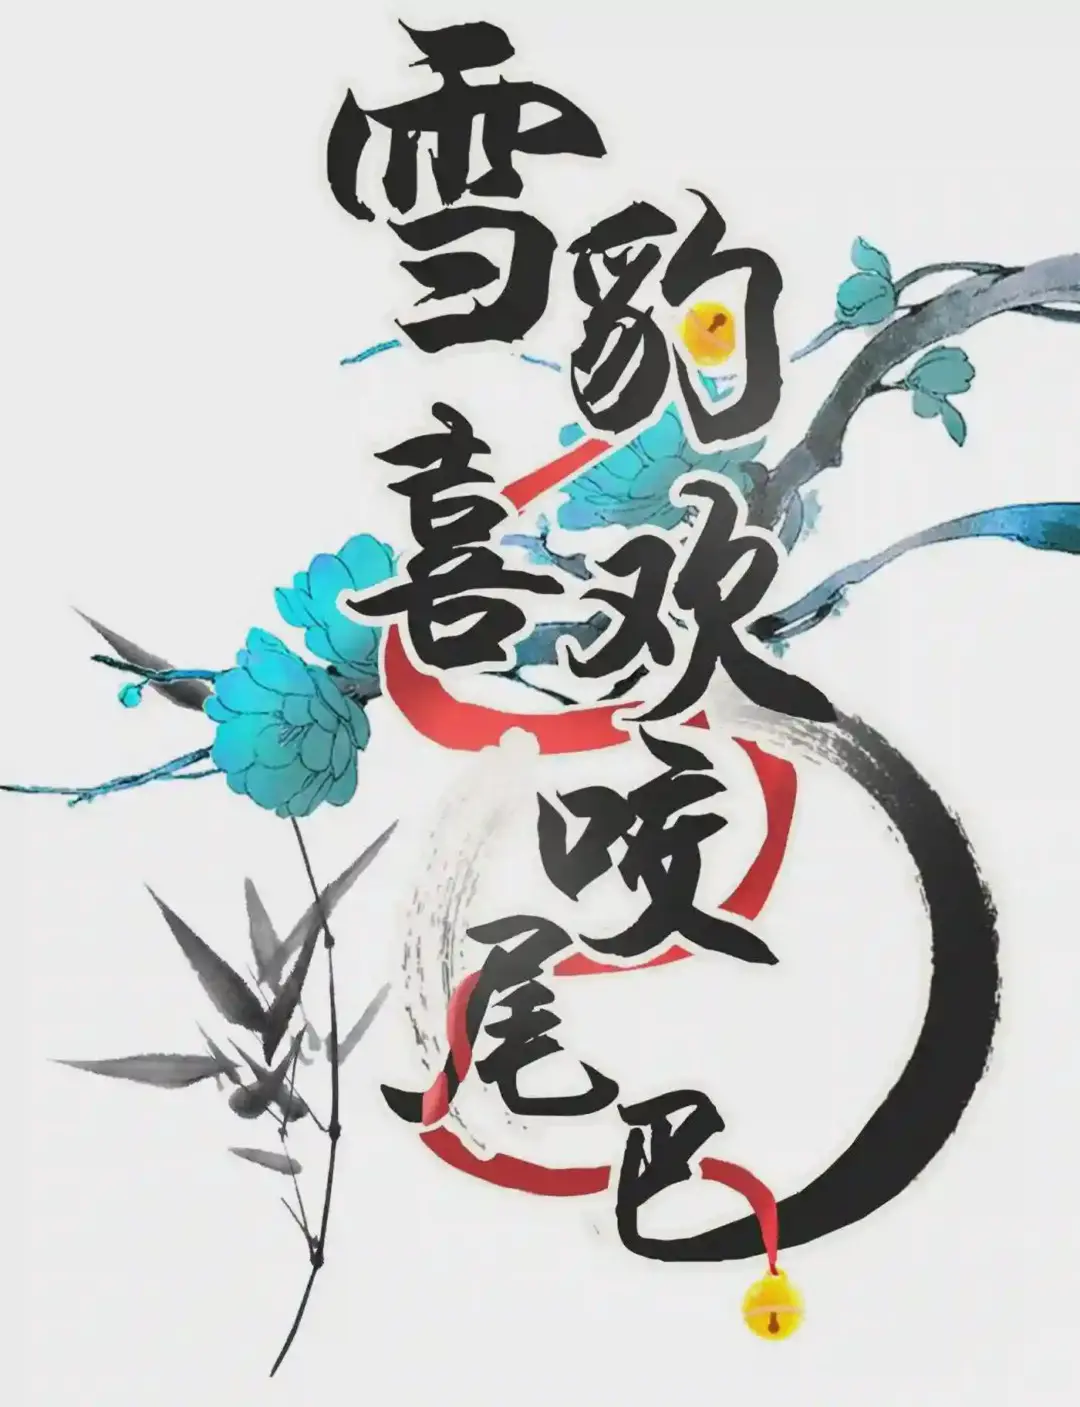 雪豹
喜欢
咬
尾巴